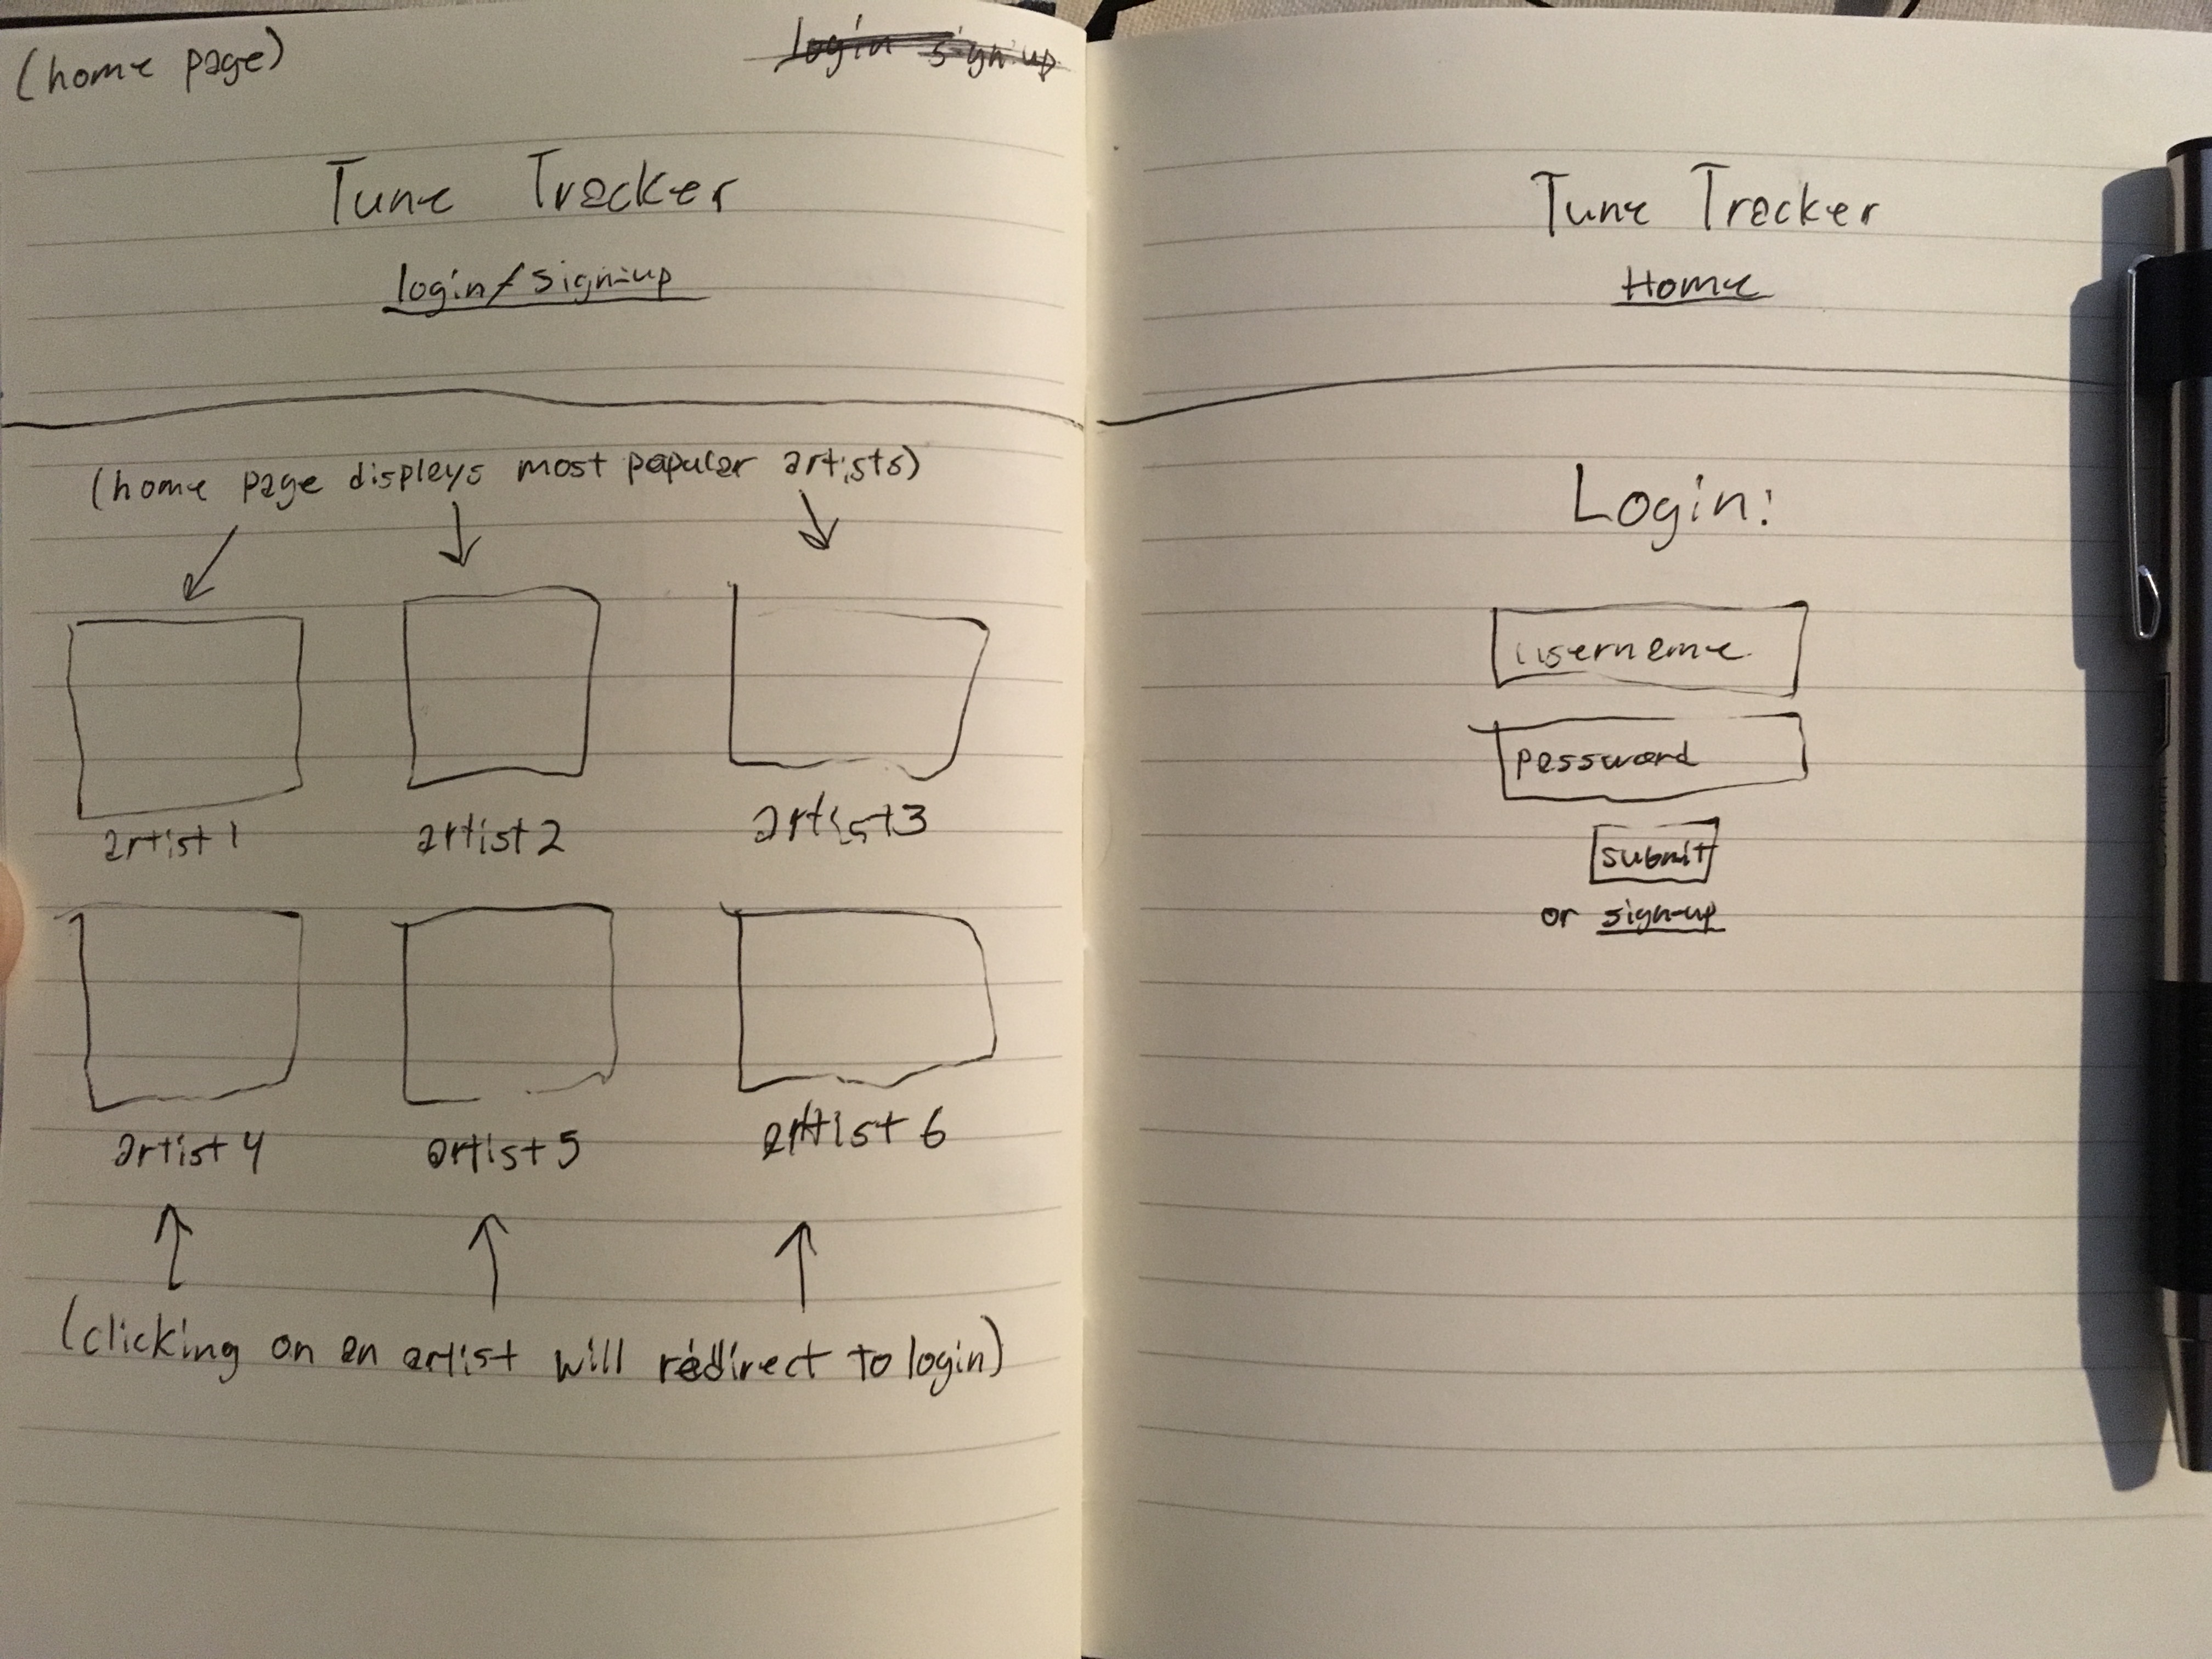 (home page)
login sign-up
Tune Tracker
login/sign-up
(home page displays most popular artists)
artist 1
artist 2
artist 3
artist 4
artist 5
artist 6
(clicking on an artist will redirect to login)
Tune Tracker
Home
Login:
username
password
submit
or sign-up